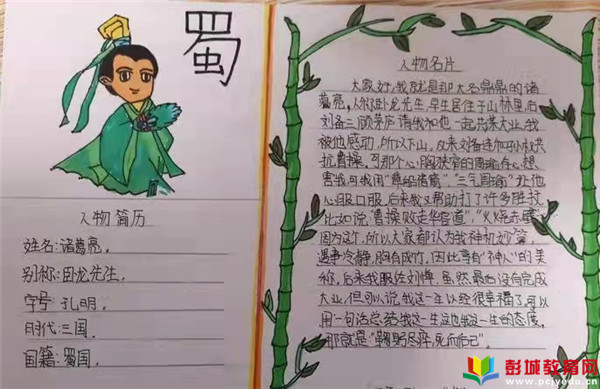 蜀
人物简历
姓名:诸葛亮。
别称:卧龙先生。
字号:孔明。
时代:三国。
国籍:蜀国。
人物名片
大家好,我就是那大名鼎鼎的诸
葛亮,人称卧龙先生,早年居住于山林里,后
刘备三顾茅庐请我和他一起共谋大业,我
被他感动,所以下山,后来刘备连和孙权共
抗曹操,可那个心胸狭窄的周瑜存心想
害我,可我用“草船借箭”、“三气周瑜”让他
心服口服,后来我又帮助打了许多胜仗
比如说,“曹操败走华容道”,“火烧赤壁”
因为这个,所以大家都认为我神机妙算,
遇事冷静,胸有成竹,因此享有“神人”的美
称,后来我服佐刘婵,虽然最后没有完成
大业,但可以说我这一生以经很幸福了,可以
用一句话总结我这一生这也我这一生的态度,
那就是“鞠躬尽瘁,死而后已”。
彭城教育网
www.pcjyedu.cn